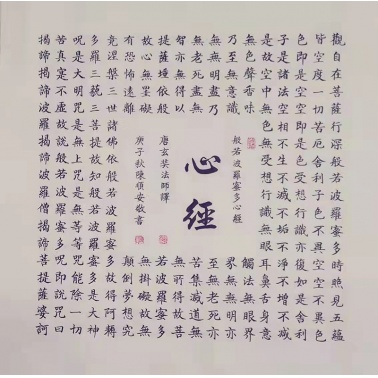 觀自在菩薩行深般若波羅蜜多時照見五蘊
皆空度一切苦厄舍利子色不異空空不異色
色即是空空即是色受想行識亦復如是舍利
子是諸法空相不生不滅不垢不淨不增不減
是故空中無色無受想行識無眼耳鼻舌身意
無色聲香味
觸法無眼界
乃至無意識
界無無明亦
無無明盡乃
至無老死亦
無老死盡無
苦集滅道無
智亦無得以
無所得故菩
提薩埵依般
若波羅蜜多
故心無罣礙
無掛礙故無
有恐怖遠離
顛倒夢想究
竟涅槃三世諸佛依般若波羅蜜多故得阿耨
多羅三藐三菩提故知般若波羅蜜多是大神
咒是大明咒是無上咒是無等等咒能除一切
苦真實不虛故說般若波羅蜜多咒即說咒曰
揭諦揭諦波羅揭諦波羅僧揭諦菩提薩婆訶
般若波羅蜜多心經
心經
唐玄奘法師譯
庚子秋陳安敬書